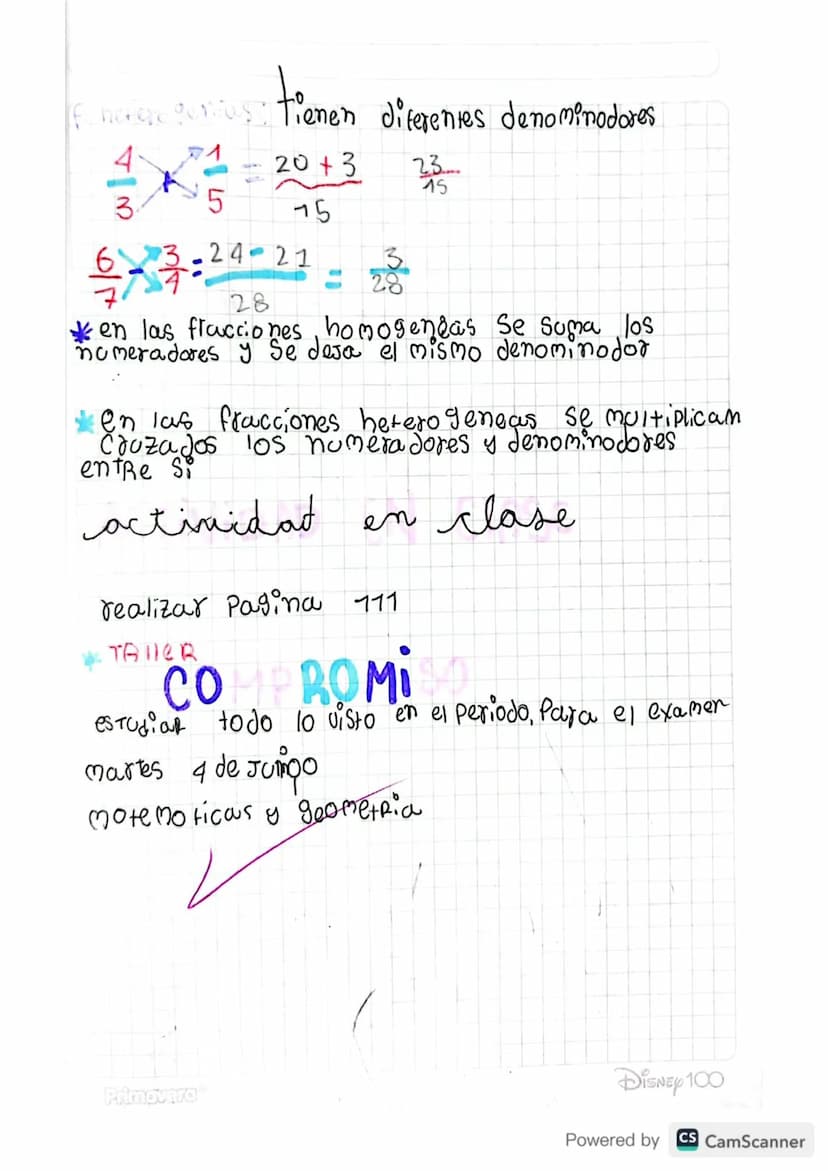 tienen diferentes denominodores
4/3 + 1/5 = 20 + 3/15 23/15
6/7 - 3/4 = 24 - 21/28 = 3/28
* en las fracciones homogeneas se suma los
numeradores y se deja el mismo denominodor
* en las fracciones heterogeneas se multiplican
cruzados los numeradores y denominodores
entre si
actividad en clase
realizar pagina 111
* TALLER
COMPROMiSO
estudiar todo lo visto en el periodo, para el examen
martes 4 de junio
motemoticas y geometria
Primavera
Disney100
Powered by CS CamScanner